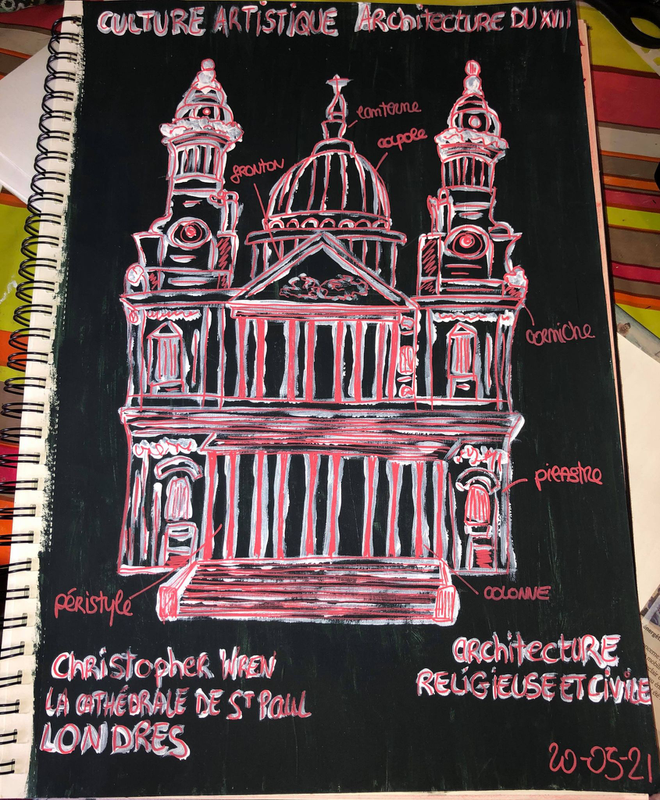 CULTURE ARTISTIQUE Architecture DU XVII
lanterne
coupole
FRONTON
corniche
pilastre
péristyle
COLONNE
Christopher WREN
LA CATHÉDRALE DE ST PAUL
LONDRES
architecture
RELIGIEUSE ET CIVILE
20-05-21